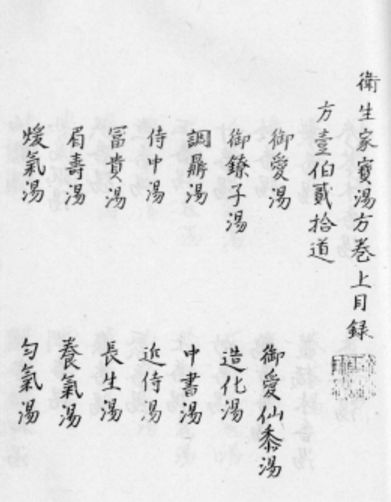 衛生家寳湯方卷上目録
方壹伯貳拾道
御愛湯　御愛仙黍湯
御鐐子湯　造化湯
調鼎湯　中書湯
侍中湯　近侍湯
冨貴湯　長生湯
眉壽湯　養氣湯
煖氣湯　匀氣湯